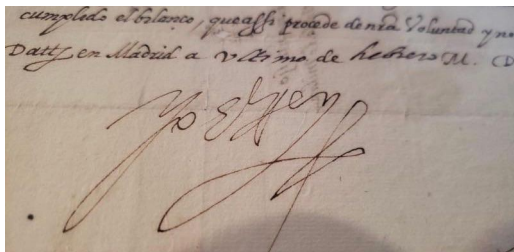 cumplido el bilanço, que assi procede de nrã Voluntad y no
Datt, en Madrid a Vltimo de hebrero M. D
Yo el Rey